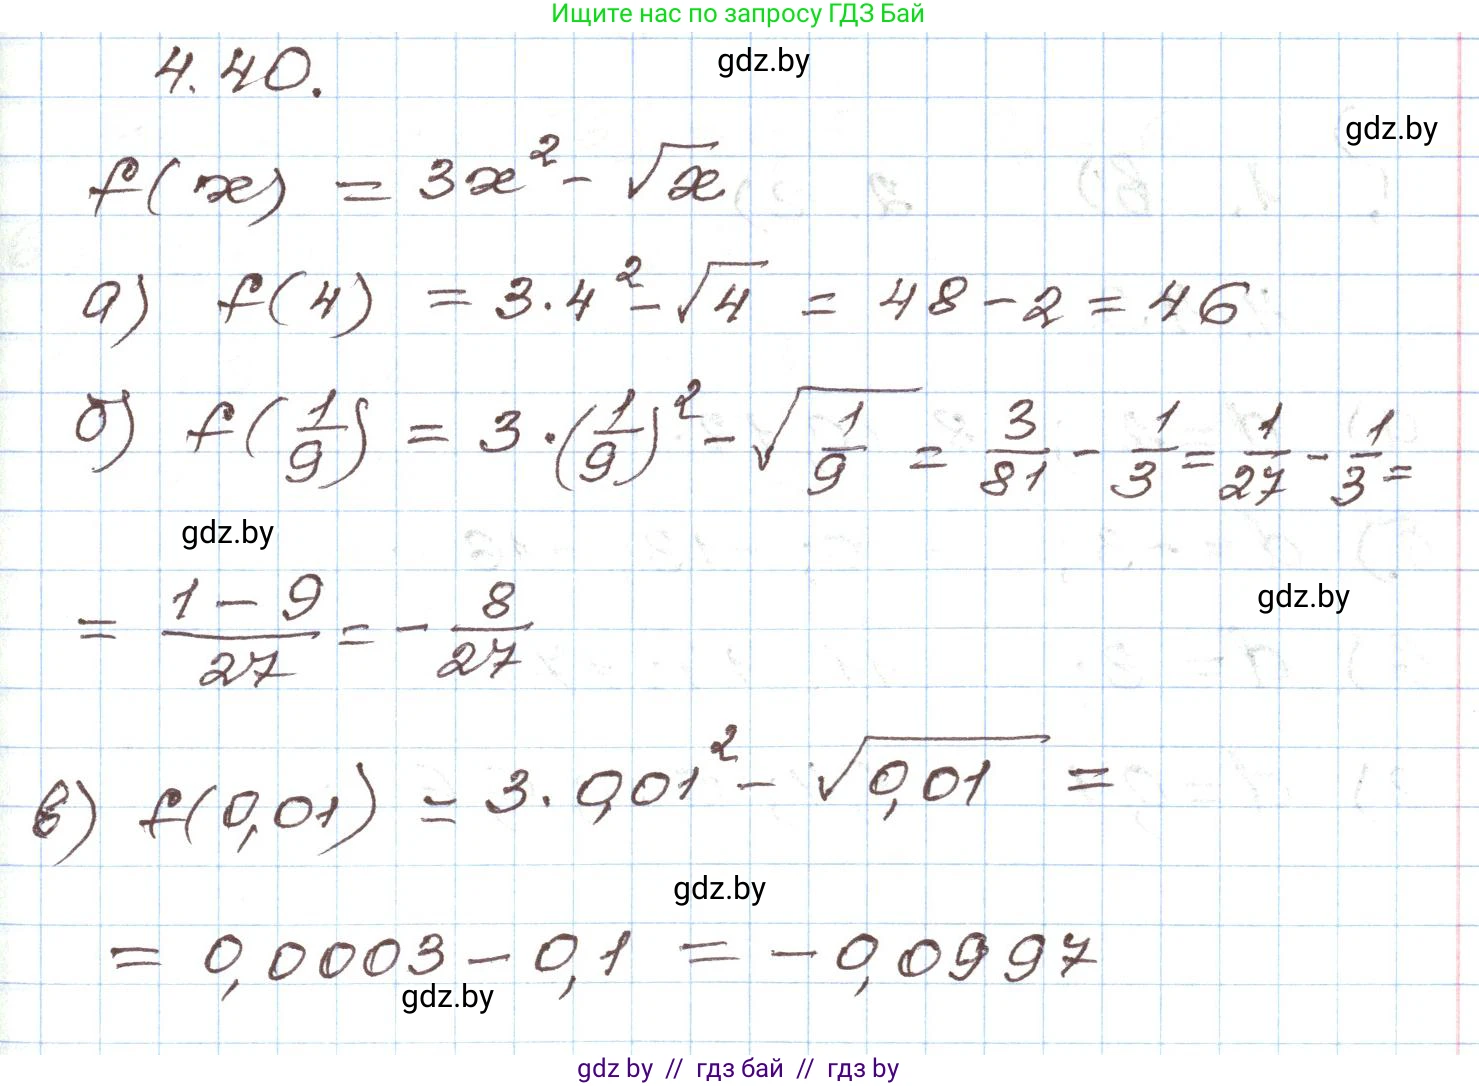 Ищите нас по запросу ГДЗ Бай
4.40.
gdz.by
gdz.by
f(x) = 3x² - √x
а) f(4) = 3·4² - √4 = 48 - 2 = 46
б) f(1/9) = 3·(1/9)² - √(1/9) = 3/81 - 1/3 = 1/27 - 1/3 =
gdz.by
gdz.by
= (1 - 9)/27 = - 8/27
в) f(0,01) = 3·0,01² - √0,01 =
gdz.by
= 0,0003 - 0,1 = -0,0997
gdz.by
gdz by // гдз бай // гдз by